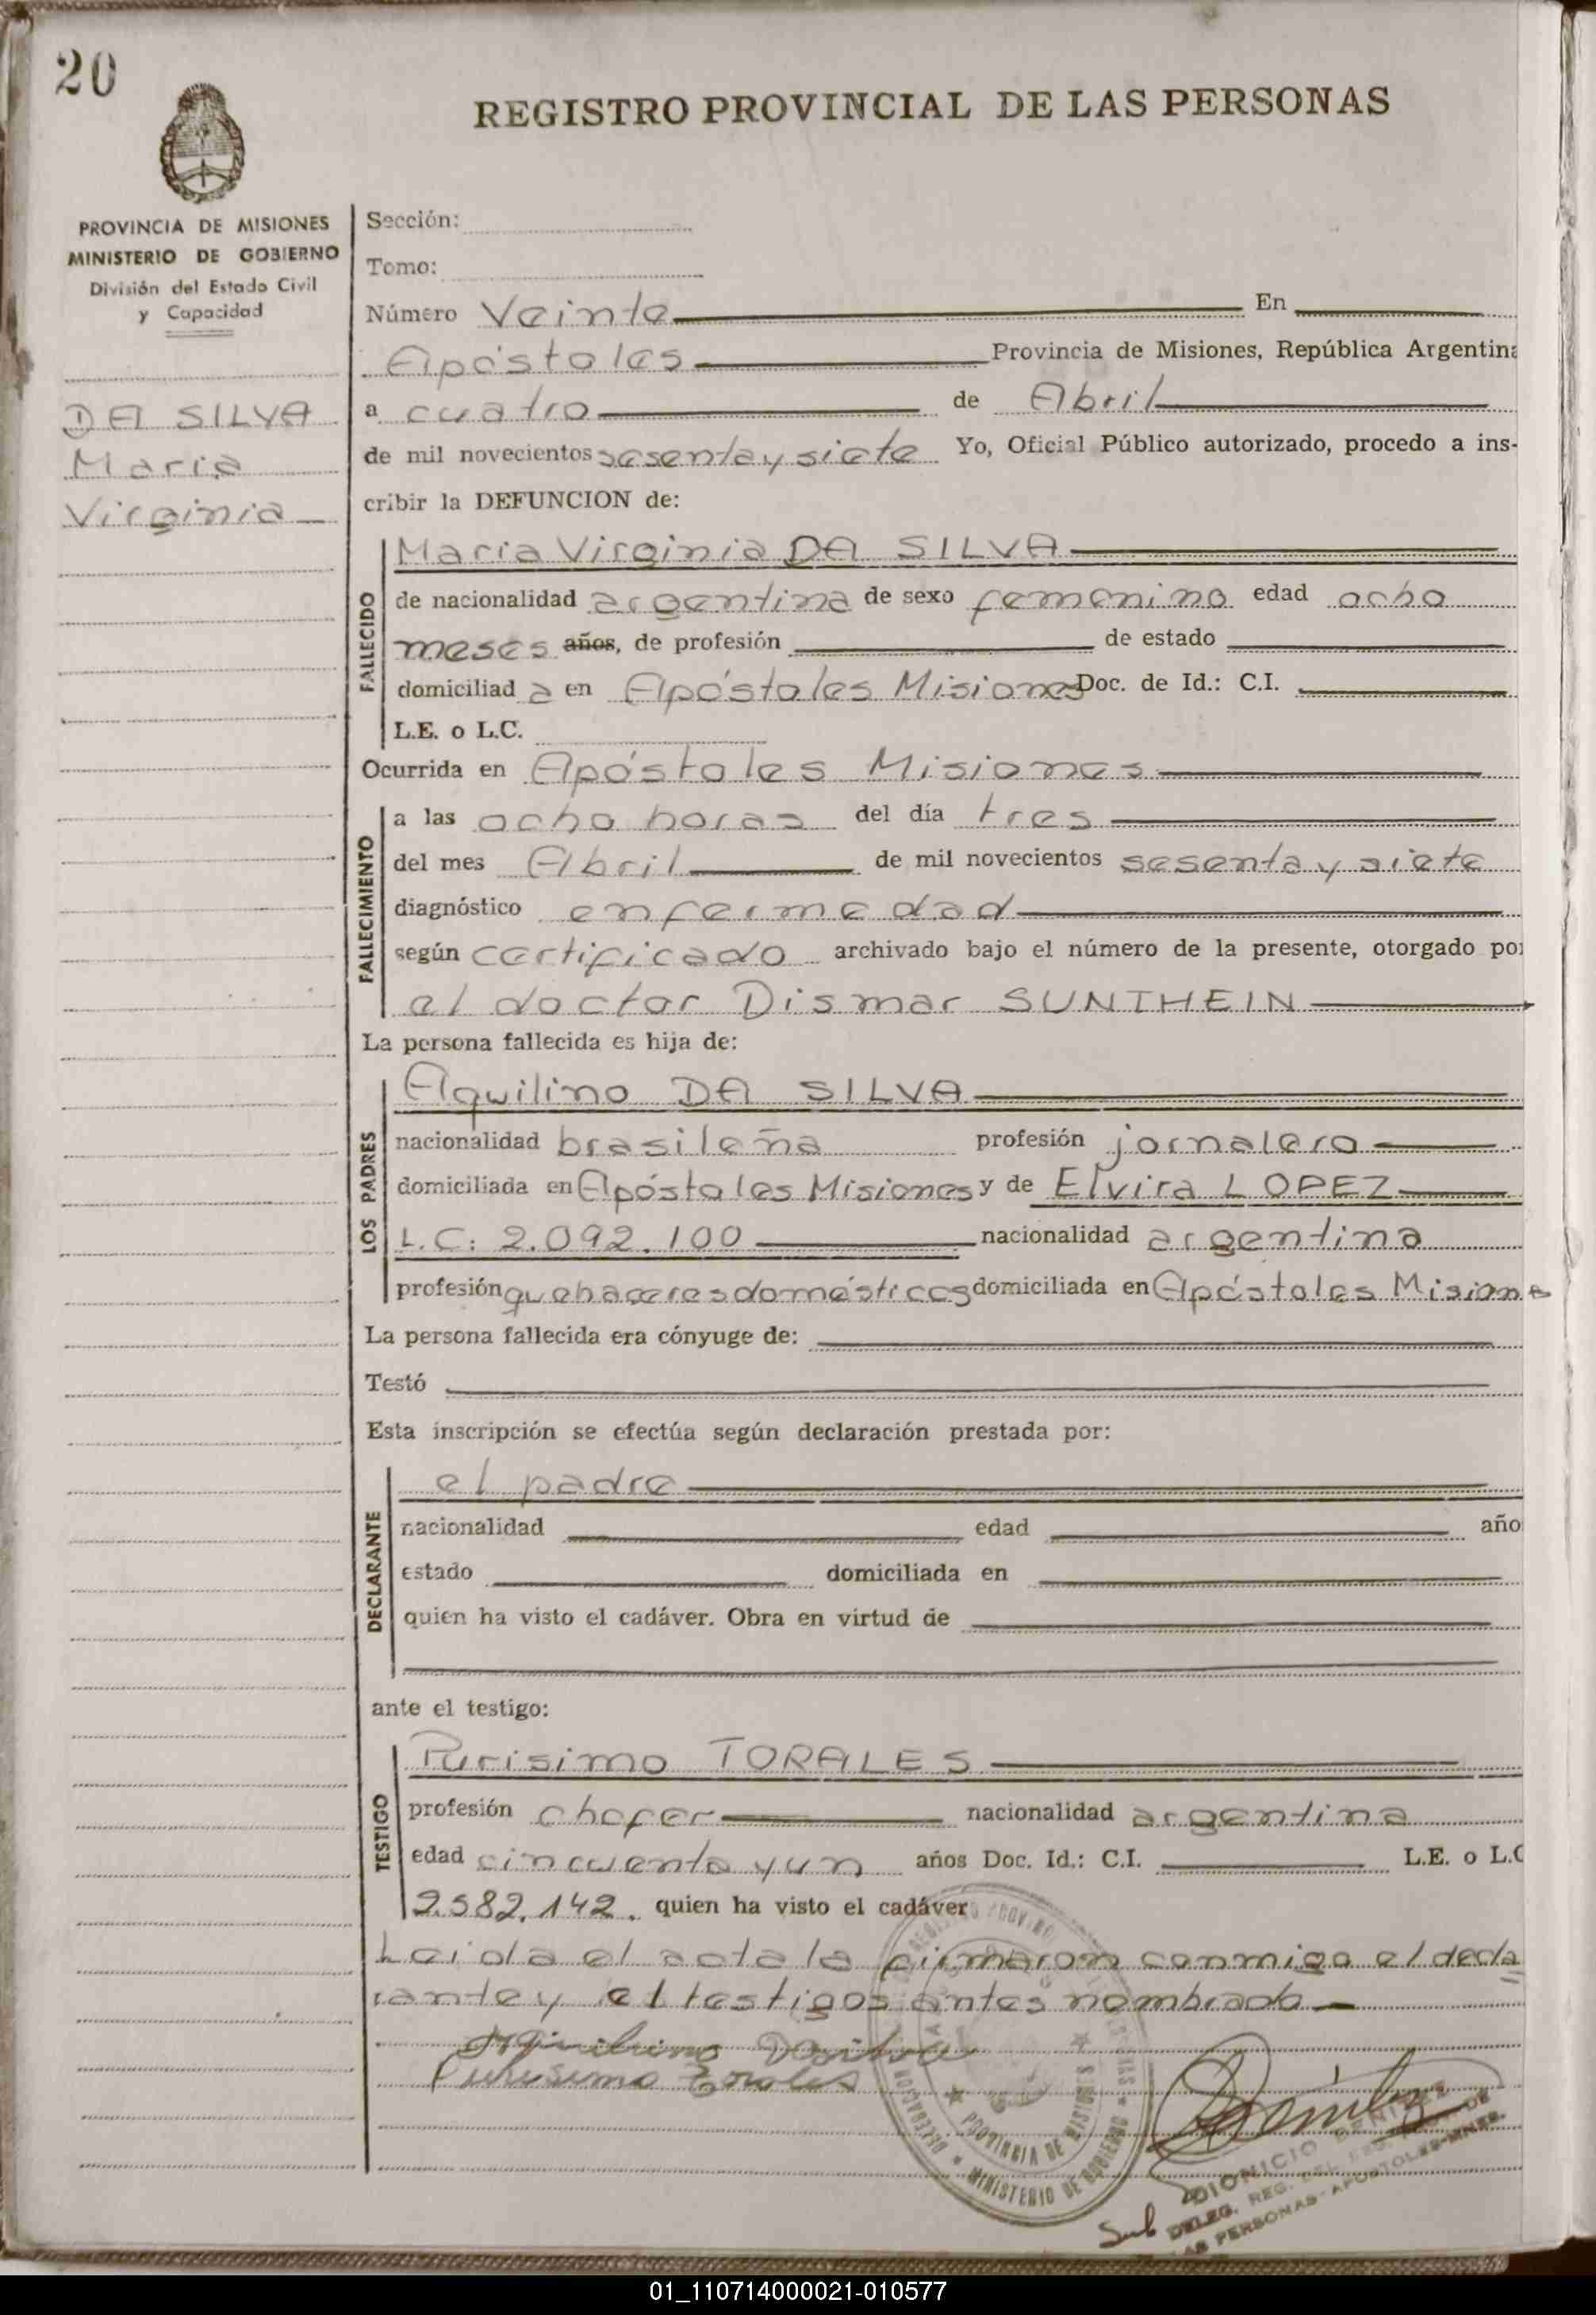 20
REGISTRO PROVINCIAL DE LAS PERSONAS
PROVINCIA DE MISIONES
MINISTERIO DE GOBIERNO
División del Estado Civil
y Capacidad
DA SILVA
Maria
Virginia
Sección:
Tomo:
Número Veinte En
Apóstoles Provincia de Misiones, República Argentina
a cuatro de Abril
de mil novecientos sesenta y siete Yo, Oficial Público autorizado, procedo a ins-
cribir la DEFUNCION de:
FALLECIDO
Maria Virginia DA SILVA
de nacionalidad argentina de sexo femenino edad ocho
meses años, de profesión de estado
domiciliad a en Apóstoles Misiones Doc. de Id.: C.I.
L.E. o L.C.
Ocurrida en Apóstoles Misiones
FALLECIMIENTO
a las ocho horas del día tres
del mes Abril de mil novecientos sesenta y siete
diagnóstico enfermedad
según certificado archivado bajo el número de la presente, otorgado por
el doctor Dismar SUNTHEIN
La persona fallecida es hija de:
LOS PADRES
Aquilino DA SILVA
nacionalidad brasileña profesión jornalero
domiciliada en Apóstoles Misiones y de Elvira LOPEZ
L.C: 2.092.100 nacionalidad argentina
profesión quehaceres domésticos domiciliada en Apóstoles Misiones
La persona fallecida era cónyuge de:
Testó
Esta inscripción se efectúa según declaración prestada por:
DECLARANTE
el padre
nacionalidad edad año
estado domiciliada en
quien ha visto el cadáver. Obra en virtud de
ante el testigo:
TESTIGO
Purisimo TORALES
profesión chofer nacionalidad argentina
edad cincuenta y un años Doc. Id.: C.I. L.E. o L.C
2.582.142. quien ha visto el cadáver
Leida el acta la firmaron conmigo el decla
rante y el testigos antes nombrado
Aquilino Dasilva
Purisimo Torales
PROVINCIA DE MISIONES
MINISTERIO DE GOBIERNO
DIONICIO BENITEZ
Sub DELEG. REG. DEL
LAS PERSONAS - APOSTOLES-MNES.
01_110714000021-010577